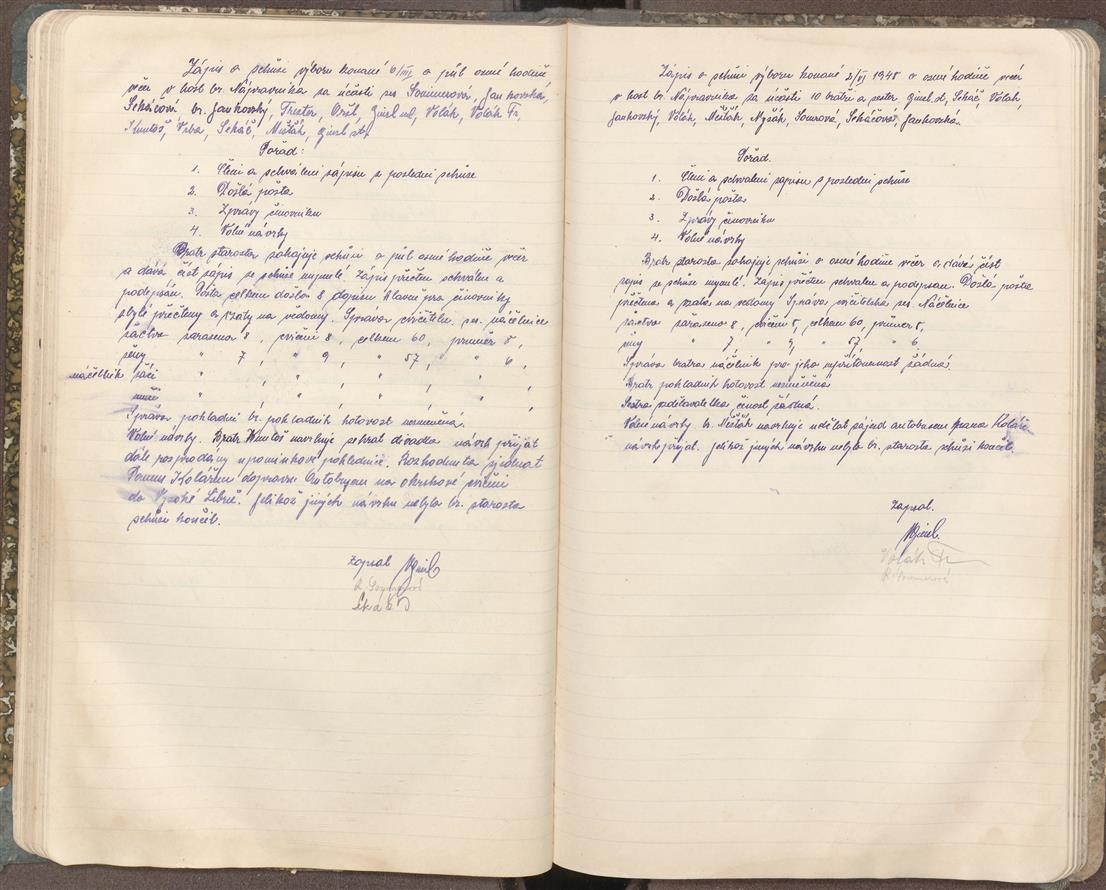 Zápis o schůzi výboru konané 6/III o půl osmé hodině
večer v host br. Nápravníka za účasti ses Sommerová, Jankovská,
Sekáčová br. Jankovský, Volák, Volák Fr,
Kmitoš, Vrba, Sekáč, Mišťák, st.
Pořad:
1. Čtení a schválení zápisu z poslední schůze
2. Došlá pošta
3. Zprávy činovníku
4. Volné návrhy
Bratr starosta zahajuje schůzi o půl osmé hodině večer
a dává číst zápis ze schůze minulé Zápis přečten schválen a
podepsán. Pošta celkem došlo 8 dopisu hlavně pro činovníky
byly přečteny a vzaty na vědomí. Zpráva cvičitelu. ses. náčelnice
žáctvo zařazeno 8, cvičení 8, celkem 60, průměr 8,
ženy " 7, " 9, " 57, " 6,
náčelník žáci " , " , " , " ,
muži " , " , " , " ,
Zpráva pokladní br. pokladník hotovost nezměněna.
Volné návrhy. Bratr Kmitoš navrhuje sehrat divadlo návrh přijat
dále rozprodány upomínkové pohlednice. Rozhodnuto zjednat
Panem Kolářem dopravu Autobusem na okrskové cvičení
do Vysoké Libně. Jelikož jiných návrhu nebylo br. starosta
schůzi končil.
Zapsal
R Sommerová
Sekáč J
Zápis o schůzi výboru konané 2/VI 1948 o osmé hodině večer
v host br. Nápravníka za účasti 10 bratří a sester, st, Sekáč, Volák,
Jankovský, Volák, Mišťák, Nyšák, Somrová, Sekáčová, Jankovská.
Pořad.
1. Čtení a schvalení zapisu z poslední schůze
2. Došlá pošta
3. Zprávy činovníku
4. Volné návrhy
Bratr starosta zahajuje schůzi o osmé hodině večer a dává číst
zapis ze schůze minulé. Zapis přečten schvalen a podepsán. Došlá pošta
přečtena a vzata na vědomí Zprava cvičitelska ses. Náčelnice
žáctvo zařazeno 8, cvičení 8, celkem 60, průměr 8,
ženy " 7 " 9, " 57 " 6.
Zpráva bratra náčelník pro jeho nepřítomnost žádná.
Bratr pokladník hotovost nezměněna
Sestra vzdělavatelka činost žádná.
Volné návrhy br. Mišťák navrhuje udělat zájezd autobusem pana Koláře
návrh přijat. Jelikož jiných návrhu nebylo br. starosta schůzi končil.
Zapsal.
Volák Fr
R Sommerová